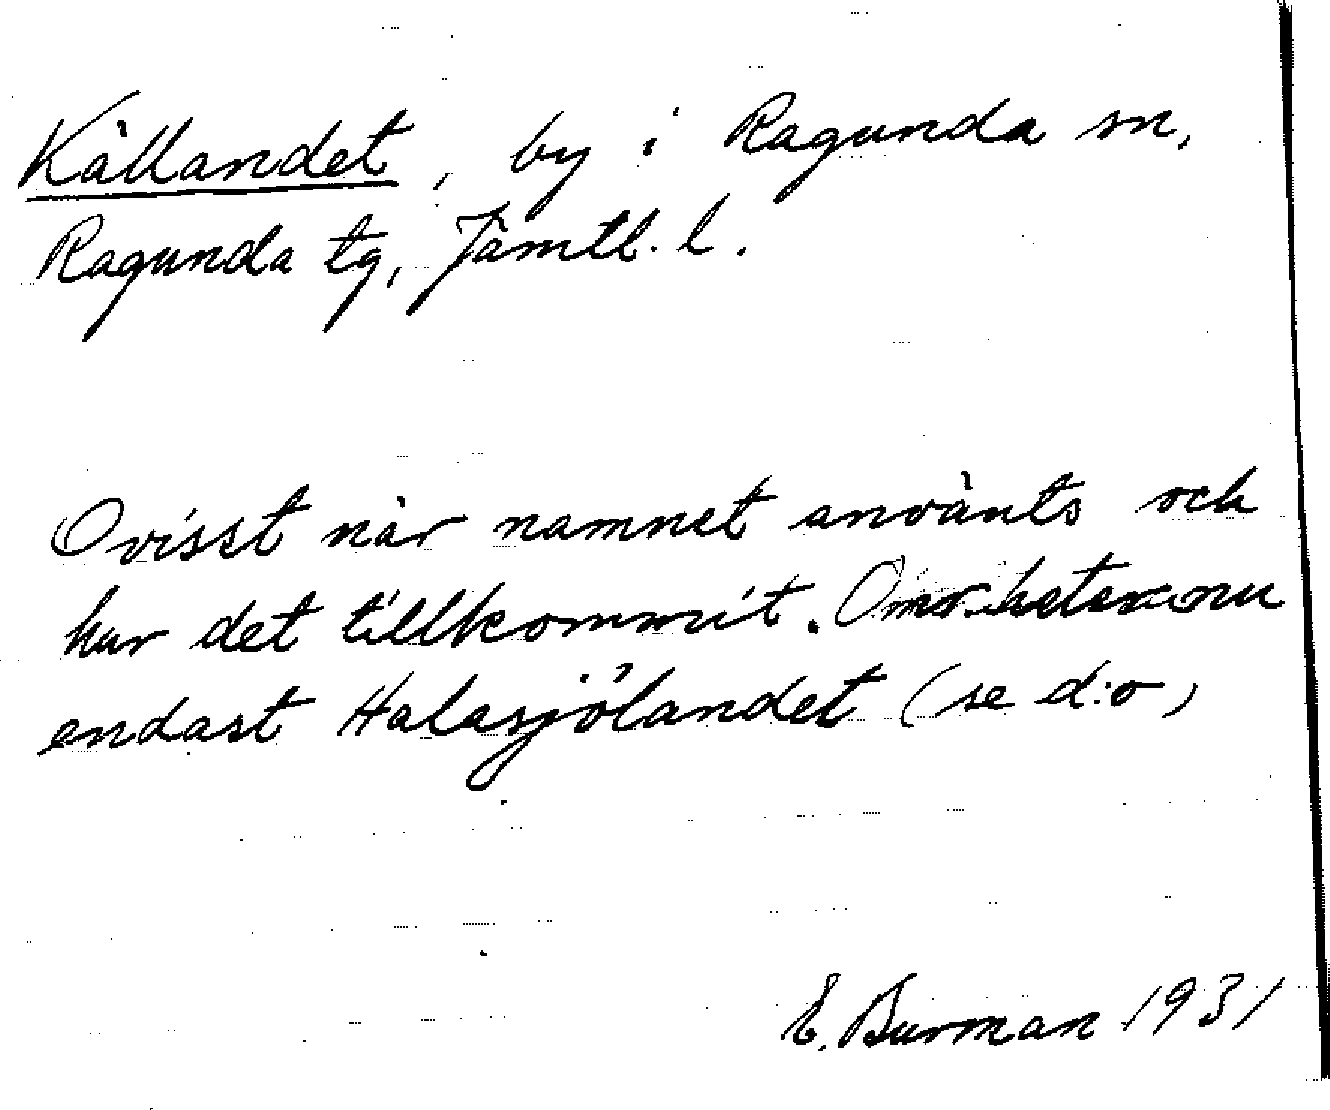 Källandet, by i Ragunda sn,
Ragunda tg, Jämtl. l.
Ovisst när namnet använts och
hur det tillkommit. Områ heter nu
endast Halasjölandet (se d:o)
E. Burman 1931